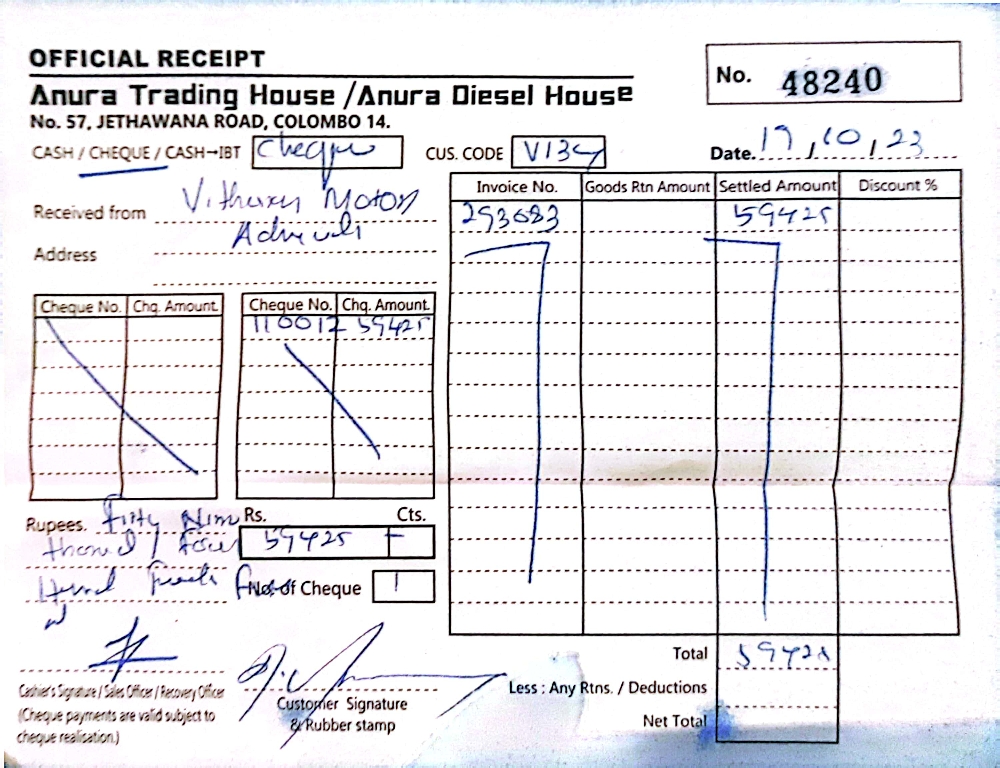 OFFICIAL RECEIPT
No. 48240
Anura Trading House /Anura Diesel House
No. 57, JETHAWANA ROAD, COLOMBO 14.
CASH / CHEQUE / CASH→IBT Cheque
CUS. CODE
Date. 19,10,23
Received from Motors
Address
Invoice No. Goods Rtn Amount Settled Amount Discount %
293683 59425
Cheque No. Chq. Amount. Cheque No. Chq. Amount.
110012 59425
Rupees. Fifty Nine
Rs. Cts.
59425 -
No. of Cheque 1
Total 59425
Less : Any Rtns. / Deductions
Net Total
Cashier's Signature / Sales Officer / Recovery Officer
(Cheque payments are valid subject to
cheque realisation.)
Customer Signature
& Rubber stamp